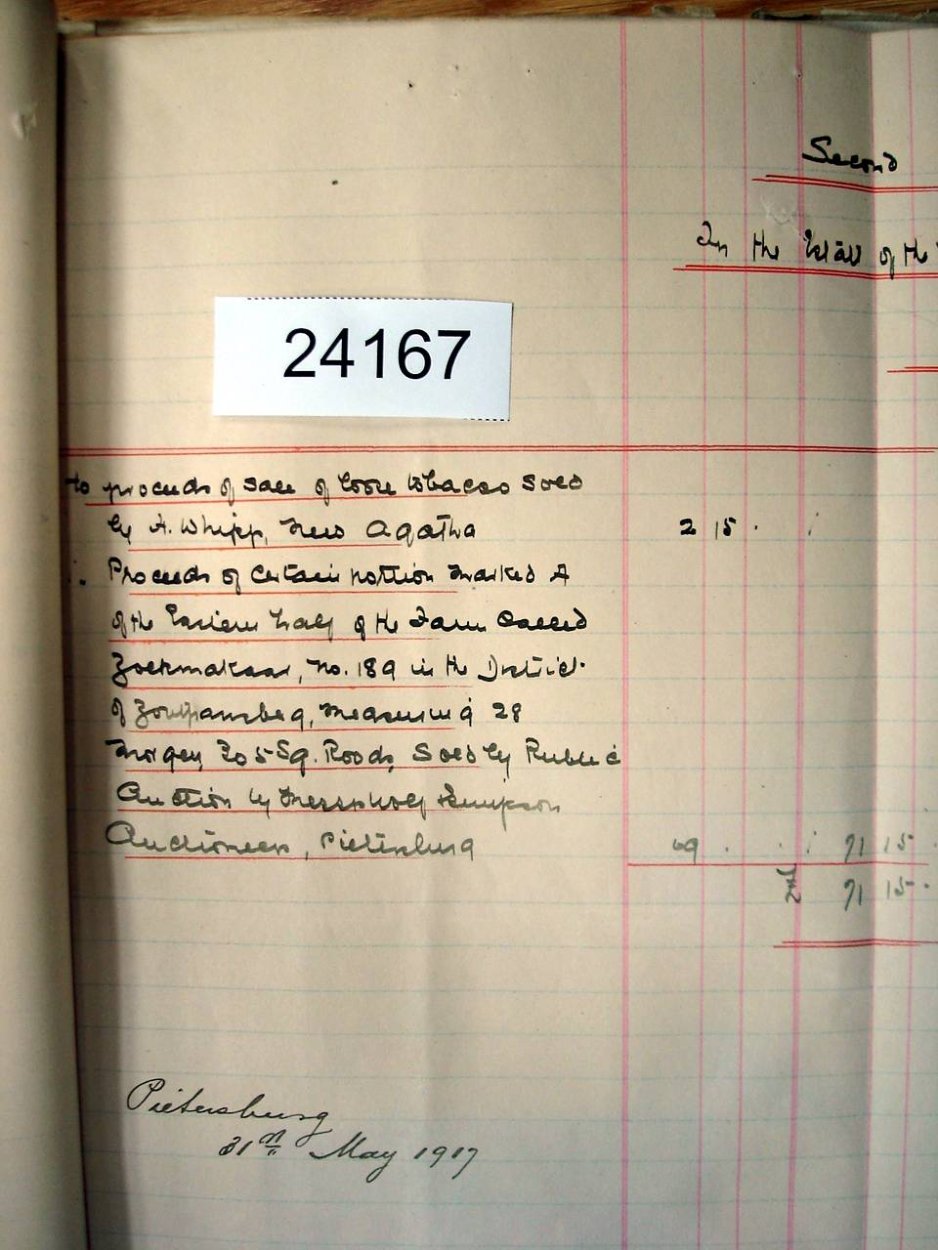 Second
In the Estate of the
24167
To proceeds of sale of loose tobacco sold
by A. Whipp, New Agatha 2 15 .
Proceeds of certain portion marked A
of the Eastern half of the Farm called
Zoekmakaar, No. 189 in the District
of Zoutpansberg, measuring 28
Morgen 205 Sq. Roods, Sold by Public
Auction by Messrs Simpson
Auctioneers, Pietersburg 69 . . 71 15 .
71 15 .
Pietersburg
31st May 1917